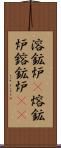 溶鉱炉 熔鉱
炉鎔鉱炉